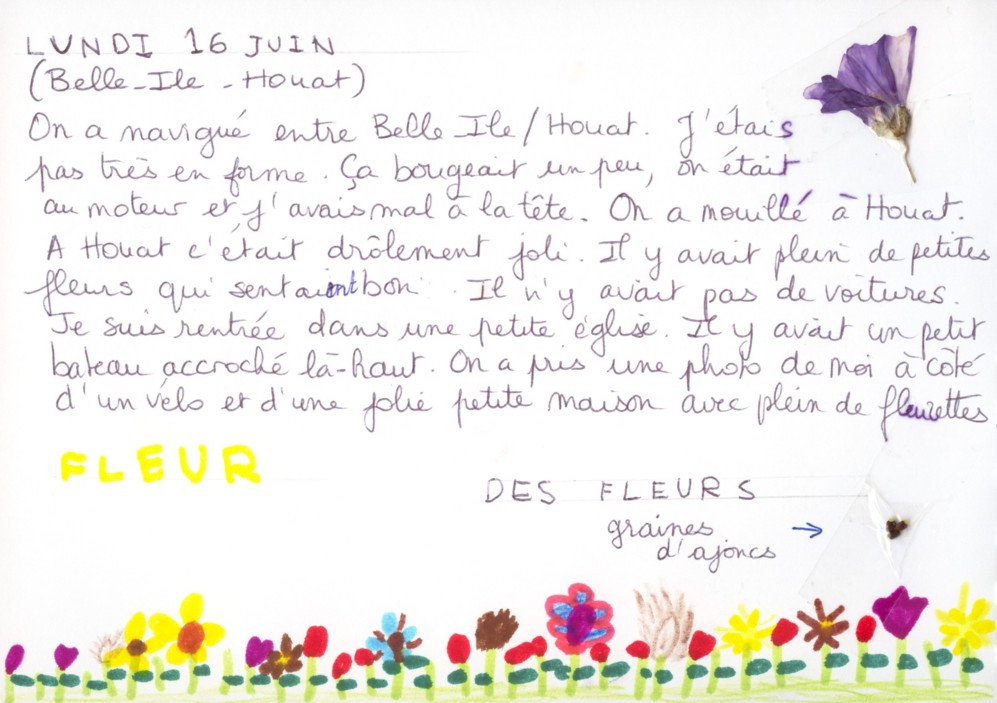 LUNDI 16 JUIN
(Belle-Ile - Houat)
On a navigué entre Belle Ile/Houat. J'étais
pas très en forme. Ça bougeait un peu, on était
au moteur et j'avais mal à la tête. On a mouillé à Houat.
A Houat c'était drôlement joli. Il y avait plein de petites
fleurs qui sentaient bon. Il n'y avait pas de voitures.
Je suis rentrée dans une petite église. Il y avait un petit
bateau accroché là-haut. On a pris une photo de moi à côté
d'un vélo et d'une jolie petite maison avec plein de fleurettes
FLEUR
DES FLEURS
graines
d'ajoncs